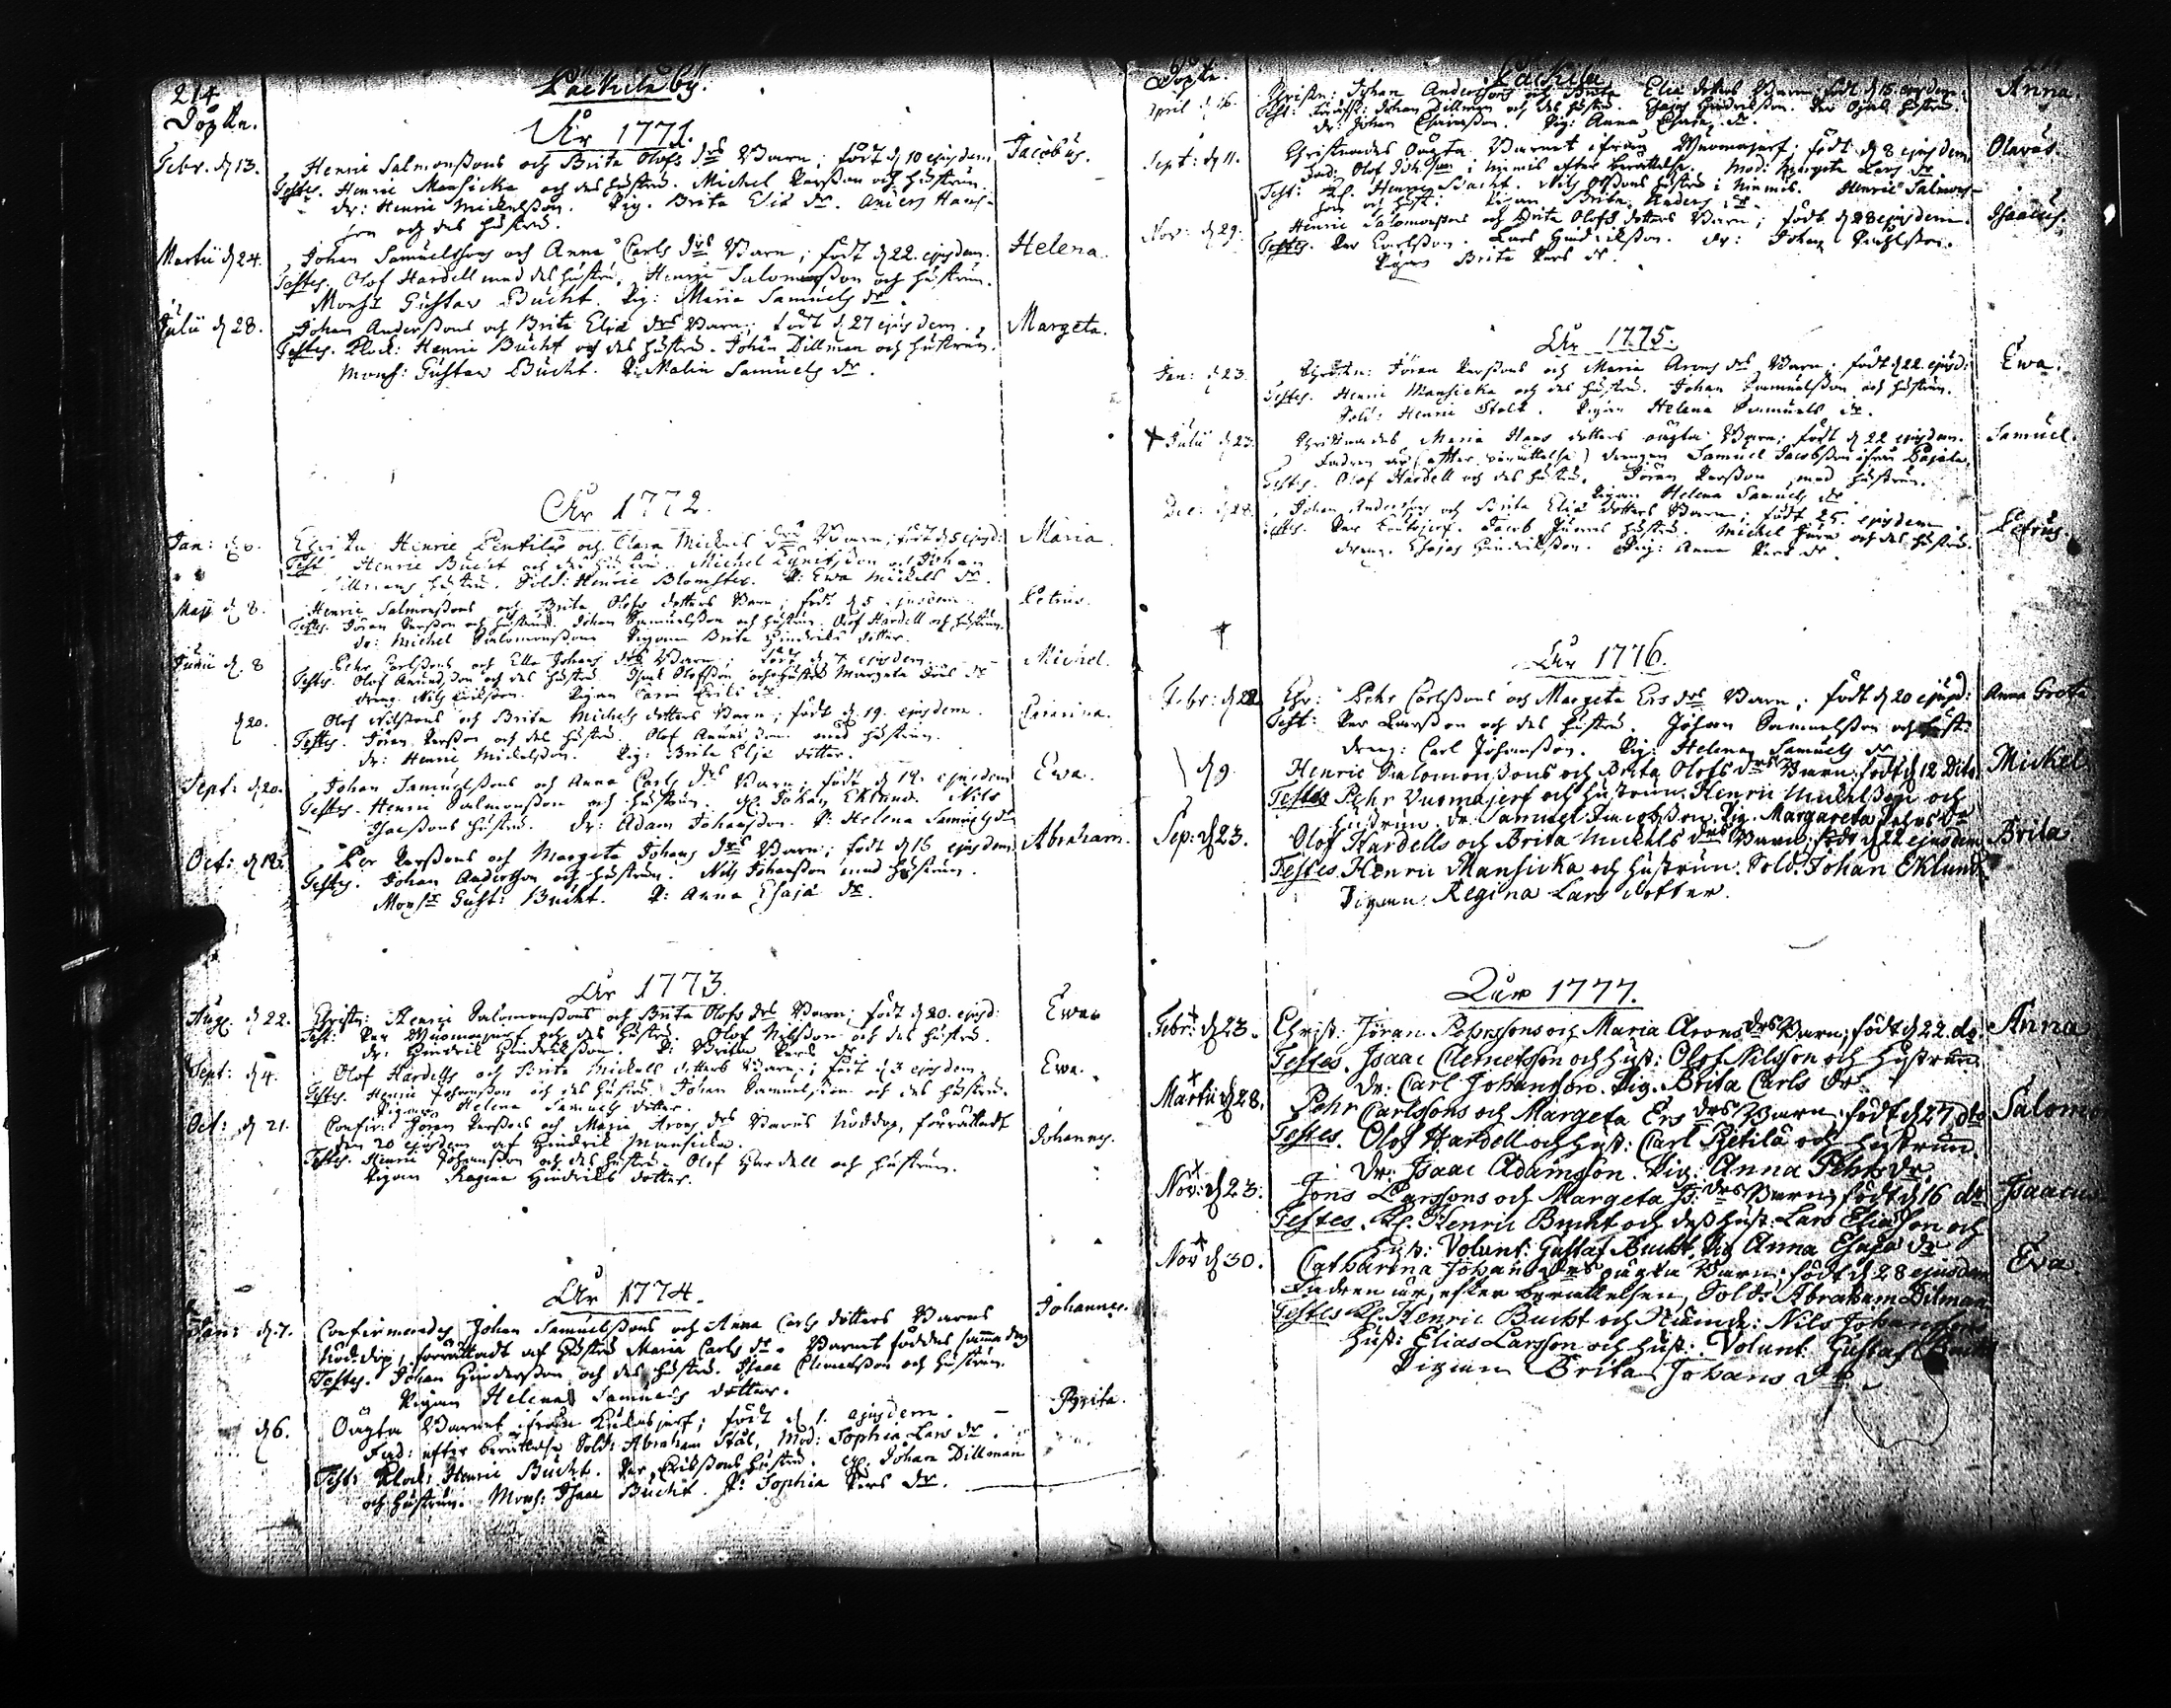 214
Döpte.
Päckilä by.
År 1771.
Febr. d 13.
Henric Salmonssons och Brita Olofs drs Barn; född d 10 ejusdem
Jacobus.
Testes. Henric Mansicka och des hustru. Michel Persson och hustrun.
dr: Henric Mickelsson. Pig. Brita Eliæ dr. Anders Hans-
son och des hustru.
Martii d 24.
Johan Samuelssons och Anna Carls drs Barn; född d 22. ejusdem.
Helena.
Testes. Olof Hardell med des hustru. Henric Salomonsson och hustrun.
Monsr Gustav Bucht. Pig: Maria Samuels dr.
Julii d 28.
Johan Anderssons och Brita Eliæ drs Barn; född d. 27 ejusdem.
Margeta.
Testes. Klock: Henric Bucht och des hustru. Johan Dillman och hustrun.
Mons: Gustav Bucht. P: Malin Samuels dr.
År 1772.
Jan:
Henric Pentiläs och Clara Mickels drs Barn; född d 5 ejusd:
Maria.
Test Henric Bucht och des hustru. Michel och Johan
hustru. Sold: Henric Blomster. P: Ewa Mickels dr.
Maji d 8.
Henric Salmonssons och Brita Olofs dotters Barn; född d 5 ejusdem
Petrus.
Testes. Jöran Persson och hustru. Johan Samuelsson och hustrun. Olof Hardell och hustrun.
dr: Michel Salomonsson Pigan Brita Hindriks dotter.
Junii d. 8
Pehr Carlssons och Ella Johans drs Barn; född d 7 ejusdem.
Michel.
Testes. Olof och des hustru. Isaac Olofsson och hustru Margeta dr
dreng. Nils Eriksson. Pigan Carin Eriks dr.
d 20.
Olof Nilssons och Brita Michels dotters Barn; född d. 19. ejusdem.
Catarina.
Testes. Jöran Persson och des hustru. Olof med hustrun.
dr: Henric Mickelsson. Pig: Brita Eliæ dotter.
Sept: d 20.
Johan Samuelssons och Anna Carls drs Barn; född d 19. ejusdem
Ewa.
Testes. Henric Salmonsson och hustrun. Johan Eklund. Nils
Isacssons hustru. dr: Adam Johansson. P: Helena Samuels dr
Oct: d 18.
Per Perssons och Margeta Johans drs Barn; född d 15 ejusdem
Abraham.
Testes. Johan Andersson och hustrun. Nils Johansson med hustrun.
Monsr Gust: Bucht. P: Anna Esajæ dr.
År 1773.
Aug. d 22.
Christn: Henric Salomonssons och Brita Olofs drs Barn; född d 20. ejusd:
Ewa.
Test: Per Wuomajerf och des hustru. Olof Nilsson och des hustru.
dr: Hindrik Hindriksson. P: Brita Pers dr
Sept: d 4.
Olof Hardells och Brita Mickels dotters Barn; född d 3 ejusdem.
Ewa.
Testes. Henric Johansson och des hustru. Johan Samuelsson och des hustru.
Pigan Helena Samuels dotter.
Oct: d 21.
Confir: Jöran Perssons och Maria Arons drs Barns Nöddop, förrättadt
Johannes.
den 20 ejusdem af Hindrik Mansicka.
Testes. Henric Johansson och des hustru. Olof Hardell och hustrun.
Pigan Regina Hindriks dotter.
År 1774.
Jan: d. 7.
Confirmerades Johan Samuelssons och Anna Carls dotters Barns
Johannes.
Nöddop, förrättadt af hustru Maria Carls dr. Barnet föddes samma dag
Testes. Johan Hindersson och des hustru. Isaac Clemetsson och hustrun.
Pigan Helena Samuels dotter.
d 6.
Oägta Barnet ifrån Kulasjerf; född d 1. ejusdem.
Brita.
Fad: efter berättelse Sold: Abraham Stål, Mod: Sophia Lars dr.
Test: Klock: Henric Bucht. Per Erikssons hustru. Johan Dillman
och hustrun. Mons: Isaac Bucht. P: Sophia Pers dr.
Döpte.
Päckilä
April d 16.
Christn: Johan Anderssons och Brita Eliæ dotters Barn; född d 15 ejusdem:
Anna.
Test: Johan Dillman och des hustru. Esajas Hindriksson. Per hustru.
dr: Johan Esaiasson. Pig: Anna Esaiæ dr.
Sept: d 11.
Christnades Oägta Barnet ifrån Wuomajerf; född d 8 ejusdem.
Olavus.
Fad: Olof Johsson i Niemis efter berättelse. Mod: Margeta Lars dr.
Test: Kl. Henric Bucht. Nils Olssons hustru i Niemis. Henric Salmons-
son och hust: Pigan Brita Anders dr.
Nov: d 29.
Henric Salomonssons och Brita Olofs dotters Barn; född d 28 ejusdem.
Isaacus.
Testes. Per Carlsson. Lars Hindriksson. dr: Johan
Pigan Brita Pers dr.
År 1775.
Jan: d 23.
Christn: Jöran Perssons och Maria Arons drs Barn; född d 22. ejusd:
Ewa.
Testes. Henric Mansicka och des hustru. Johan Samuelsson och hustrun.
Sold: Henric Stolt. Pigan Helena Samuels dr.
Julii d 23.
Christnades Maria Hans dotters oägta Barn; född d 22 ejusdem.
Samuel.
Fadren är (efter berättelse) drengen Samuel Jacobsson ifrån Pajala.
Testes. Olof Hardell och des hustru. Jöran Persson med hustrun.
Pigan Helena Samuels dr.
Dec: d 28.
Johan Anderssons och Brita Eliæ dotters Barn; född 25. ejusdem.
Petrus.
Testes. Per Jacob hustru. Michel och des hustru.
dreng. Esajas Hindriksson. Pig: Anna Pers dr.
År 1776.
Febr: d 22
Chr: Pehr Carlssons och Margeta Ers drs Barn; född d 20 ejusd:
Anna Greta
Test: Per Larsson och des hustru. Johan Samuelsson och hust:
dreng: Carl Johansson. Pig: Helena Samuels dr
d 9.
Henric Salomonssons och Brita Olofs drs Barn; född d 12 Dito.
Mickel
Testes Pehr Vuomajerf och hustrun. Henric Mickelsson och
hustrun. dr. Samuel Jacobsson. Pig. Margareta Pehrs dr
Sep: d 23.
Olof Hardells och Brita Mickels drs Barn; född d 22 ejusdem
Brita
Testes. Henric Mansicka och hustrun. Sold: Johan Eklund,
Pigan: Regina Lars dotter.
År 1777.
Febr: d 23.
Christ. Jöran Pehrssons och Maria Arons drs Barn; född d 22. do.
Anna
Testes. Isaac Clemetsson och hust: Olof Nilsson och hustrun
Dr: Carl Johansson. Pig. Brita Carls dr.
Martii d 28.
Pehr Carlssons och Margeta Ers drs Barn; född d 27 dto
Salomo
Testes. Olof Hardell och hust: Carl Pietilä och hustrun.
Dr: Isaac Adamsson. Pig: Anna Pehrs dr.
Nov: d 23.
Jöns Larssons och Margeta Is: drs Barn; född d 16 do
Isaacus
Testes. Kl. Henric Bucht och dess hust: Lars Eliasson och
hust: Volunt: Gustaf Bucht, Pig Anna Esajæ dr
Nov d 30.
Catharina Johans drs oägta Barn; född d 28 ejusdem
Eva
Fadren är, efter berättelsen, Sold: Abraham Dilman
Testes Kl. Henric Bucht och Nämd: Nils Johanssons
hust: Elias Larsson och hust: Volunt: Gustaf Bucht
Pigan Brita Johans dr.